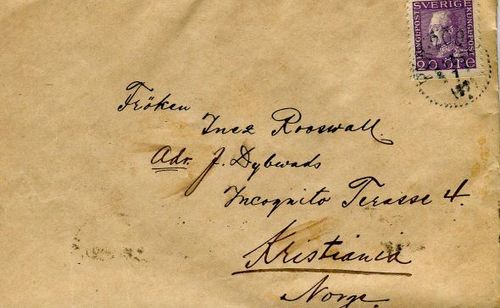 SVERIGE
KUNGLPOST
20 ÖRE
Fröken
Inez Rooswall.
Adr. J. Dybwads
Incognito Terasse 4.
Kristiania
Norge